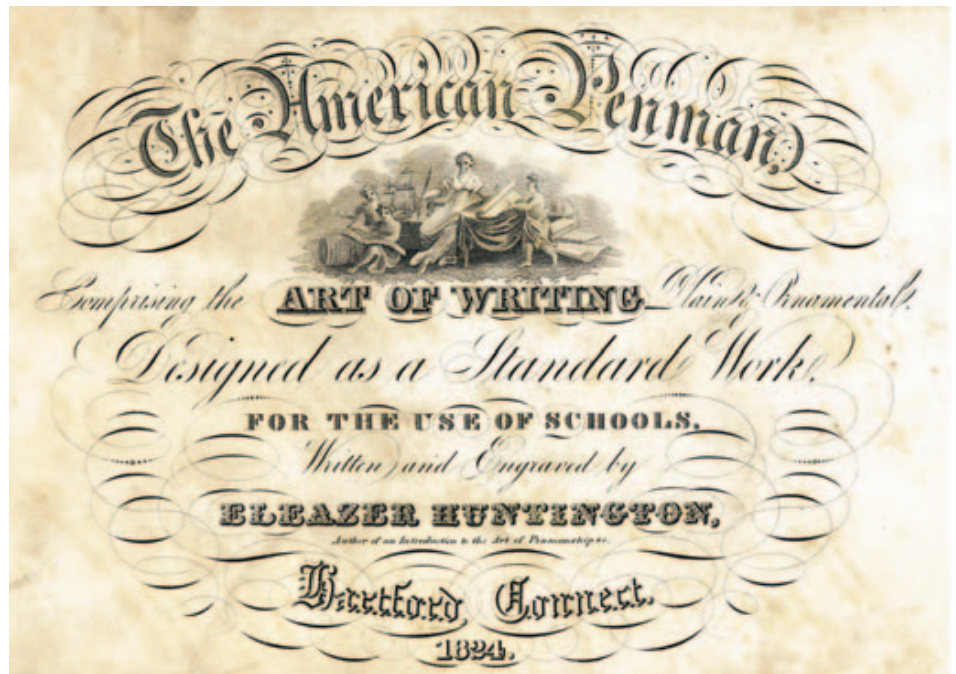 The American Penman,
Comprising the ART OF WRITING Plain & Ornamental.
Designed as a Standard Work,
FOR THE USE OF SCHOOLS.
Written and Engraved by
ELEAZER HUNTINGTON,
Author of an Introduction to the Art of Penmanship &c.
Hartford Connect.
1824.